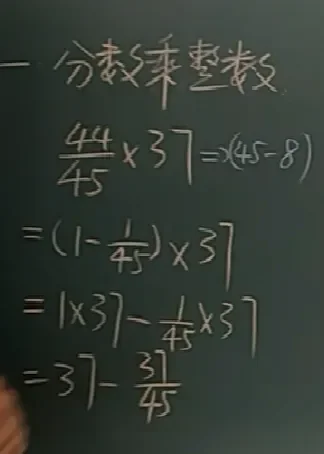 一 分数乘整数
44/45 × 37 =>(45-8)
= (1 - 1/45) × 37
= 1×37 - 1/45 × 37
= 37 - 37/45